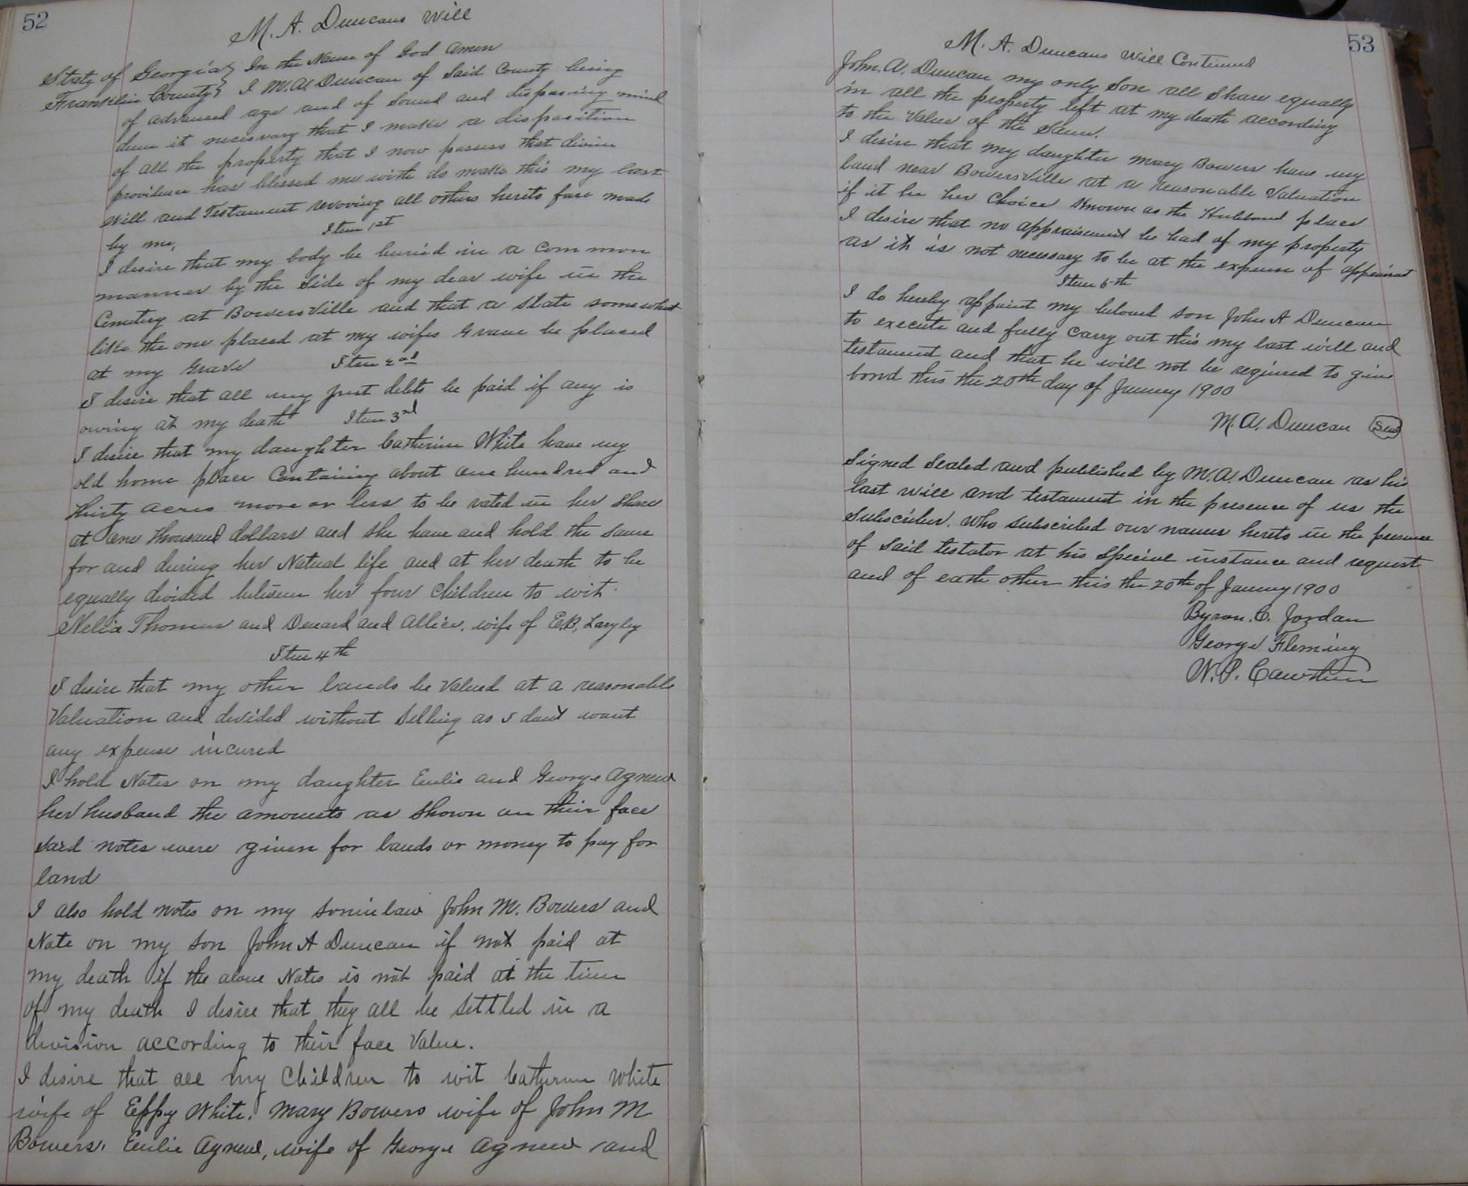 52
M. A. Duncans Will
State of Georgia } In the Name of God Amen
Franklin County } I M. A. Duncan of Said County being
of advanced age and of Sound and disposing mind
deem it necessary that I make a disposition
of all the property that I now possess that divine
providence has blessed me with do make this my last
Will and Testament revoving all others herito fore made
by me.
Item 1st
I desire that my body be buried in a common
manner by the Side of my dear wife in the
Cemetery at Bowersville and that a slate somewhat
like the one placed at my wifes Grave be placed
at my Grave
Item 2nd
I desire that all my Just debts be paid if any is
owing at my death
Item 3rd
I desire that my daughter Catherine White have my
old home place Containing about one hundred and
thirty acres more or less to be valed in her Share
at one thousand dollars and she have and hold the same
for and during her Natural life and at her death to be
equally divided between her four Children to wit
Thomas and and Allice, wife of E.B. Langley
Item 4th
I desire that my other lands be Valued at a reasonable
Valuation and divided without Selling as I dont want
any expense incured
I hold Notes on my daughter Eulie and George Agnew
her husband the amounts as Shown on their face
said notes were given for lands or money to pay for
land
I also hold notes on my soninlaw John M. Bowers and
Note on my son John A Duncan if not paid at
my death if the above Notes is not paid at the time
of my death I desire that they all be settled in a
division according to their face Value.
I desire that all my Children to wit Catherine White
wife of Effry White, Mary Bowers wife of John M
Bowers, Eulie Agnew, wife of George Agnew and
53
M. A. Duncans Will Continued
John A. Duncan my only Son all Share equally
in all the property left at my death according
to the Value of the Same.
I desire that my daughter Mary Bowers have my
land near Bowersville at a reasonable Valuation
if it be her Choice Known as the Hubbard place
I desire that no appraisment be had of my property
as it is not necessary to be at the expense of
Item 5th
I do hereby appoint my beloved son John A Duncan
to execute and fully carry out this my last will and
testament and that he will not be reqired to give
bond this the 20th day of January 1900
M. A. Duncan Seal
Signed Sealed and published by M. A. Duncan as his
last will and testament in the presence of us the
Subscriber. Who subscribed our names hereto in the presence
of said testator at his Special instance and request
and of each other this the 20th of January 1900
Byron. C. Jordan
George Fleming
W. P. Cawthon